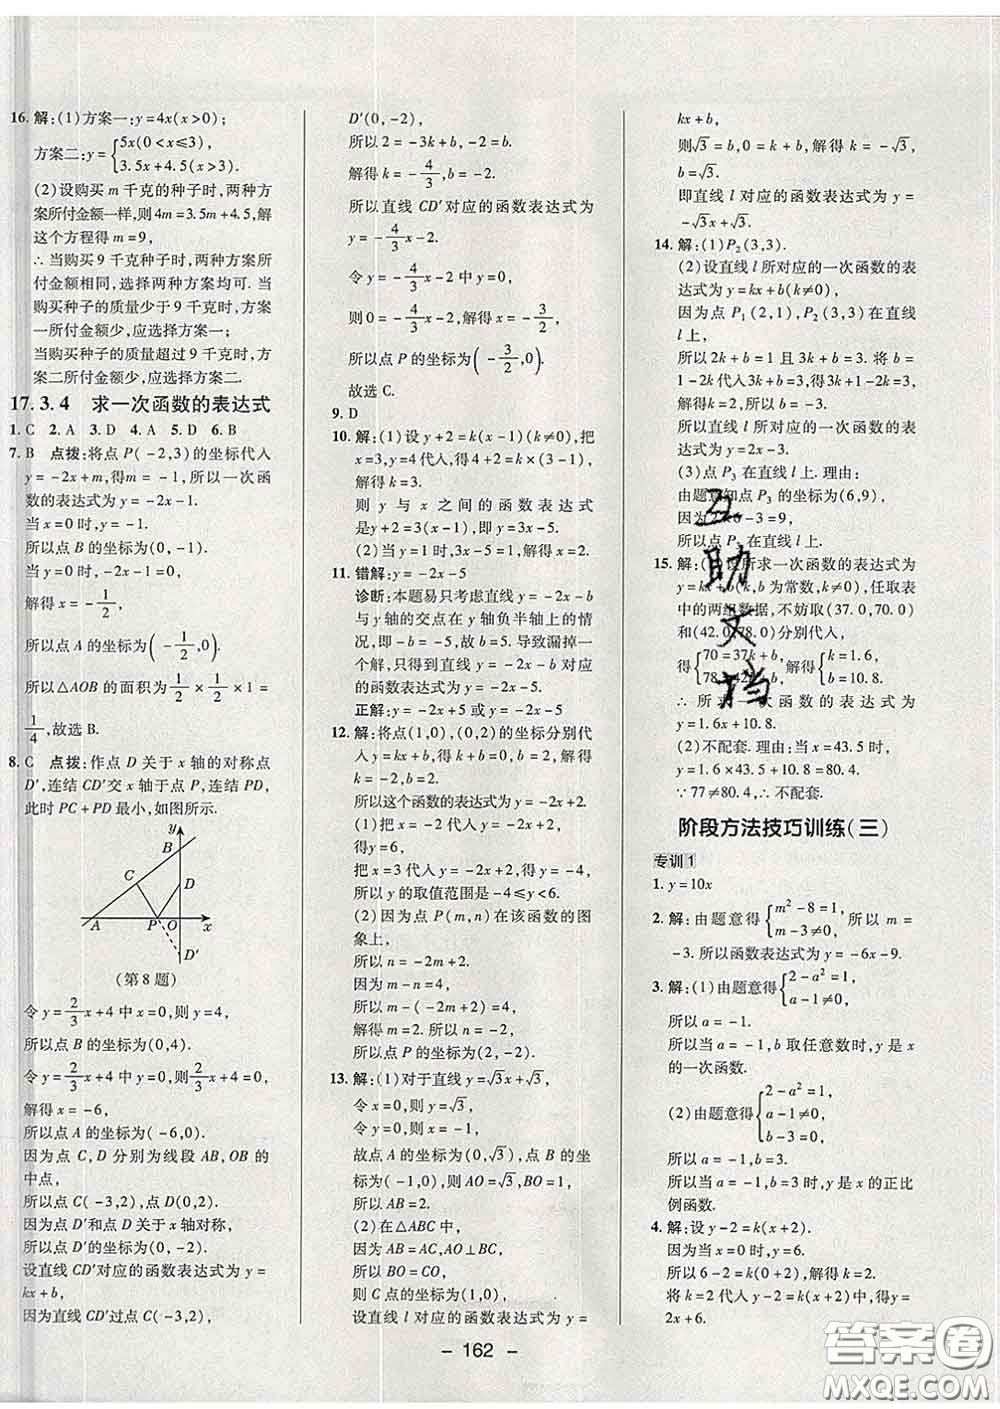 16.解:(1)方案一:y=4x(x>0);
方案二:y={5x(0<x≤3),
3.5x+4.5(x>3).
(2)设购买 m 千克的种子时,两种方
案所付金额一样,则4m=3.5m+4.5,解
这个方程得m=9,
∴当购买9千克种子时,两种方案所付
金额相同,选择两种方案均可. 当
购买种子的质量少于9千克时,方案
一所付金额少,应选择方案一;
当购买种子的质量超过9千克时,方
案二所付金额少,应选择方案二.
17.3.4 求一次函数的表达式
1.C 2.A 3.D 4.A 5.D 6.B
7.B 点拨:将点P(-2,3)的坐标代入
y=-2x+m,得m=-1,所以一次函
数的表达式为y=-2x-1.
当x=0时,y=-1.
所以点B的坐标为(0,-1).
当y=0时,-2x-1=0,
解得x=-1/2,
所以点A的坐标为(-1/2,0).
所以△AOB的面积为1/2×1/2×1=
1/4,故选B.
8.C 点拨:作点D关于x轴的对称点
D′,连结CD′交x轴于点P,连结PD,
此时PC+PD最小,如图所示.
y
B
C
D
A
P
O
x
D′
(第8题)
令y=2/3x+4中x=0,则y=4,
所以点B的坐标为(0,4).
令y=2/3x+4中y=0,则2/3x+4=0,
解得x=-6,
所以点A的坐标为(-6,0).
因为点C,D分别为线段AB,OB的
中点,
所以点C(-3,2),点D(0,2).
因为点D′和点D关于x轴对称,
所以点D′的坐标为(0,-2).
设直线CD′对应的函数表达式为y=
kx+b,
因为直线CD′过点C(-3,2),
D′(0,-2),
所以2=-3k+b,-2=b,
解得k=-4/3,b=-2.
所以直线CD′对应的函数表达式为
y=-4/3x-2.
令y=-4/3x-2中y=0,
则0=-4/3x-2,解得x=-3/2,
所以点P的坐标为(-3/2,0).
故选C.
9.D
10.解:(1)设y+2=k(x-1)(k≠0),把
x=3,y=4代入,得4+2=k×(3-1),
解得k=3.
则y与x之间的函数表达式
是y+2=3(x-1),即y=3x-5.
(2)当y=1时,3x-5=1,解得x=2.
11.错解:y=-2x-5
诊断:本题易只考虑直线y=-2x-b
与y轴的交点在y轴负半轴上的情
况,即-b=-5,故b=5.导致漏掉一
个解,只得到直线y=-2x-b对应
的函数表达式为y=-2x-5.
正解:y=-2x+5或y=-2x-5
12.解:将点(1,0),(0,2)的坐标分别代
入y=kx+b,得k+b=0,b=2,所以
k=-2.
所以这个函数的表达式为y=-2x+2.
(1)把x=-2代入y=-2x+2,
得y=6,
把x=3代入y=-2x+2,得y=-4,
所以y的取值范围是-4≤y<6.
(2)因为点P(m,n)在该函数的图
象上,
所以n=-2m+2.
因为m-n=4,
所以m-(-2m+2)=4,
解得m=2.所以n=-2.
所以点P的坐标为(2,-2).
13.解:(1)对于直线y=√3x+√3,
令x=0,得y=√3,
令y=0,得x=-1,
故点A的坐标为(0,√3),点B的坐标
为(-1,0),则AO=√3,BO=1.
所以AB=2.
(2)在△ABC中,
因为AB=AC,AO⊥BC,
所以BO=CO,
则C点的坐标为(1,0),
设直线l对应的函数表达式为y=
kx+b,
则√3=b,0=k+b,解得k=-√3,
b=√3.
即直线l对应的函数表达式为y=
-√3x+√3.
14.解:(1)P₂(3,3).
(2)设直线l所对应的一次函数的表
达式为y=kx+b(k≠0),
因为点P₁(2,1),P₂(3,3)在直线
l上,
所以2k+b=1且3k+b=3. 将b=
1-2k代入3k+b=3,得k=2,
解得b=-3.
所以直线l所对应的一次函数的表
达式为y=2x-3.
(3)点P₃在直线l上.理由:
由题意知点P₃的坐标为(6,9),
因为2×6-3=9,
所以点P₃在直线l上.
15.解:(1)设所求一次函数的表达式为
y=kx+b(k,b为常数,k≠0),任取表
中的两组数据,不妨以(37.0,70.0)
和(42.0,78.0)分别代入,
得{70=37k+b,
78=42k+b,解得{k=1.6,
b=10.8.
∴所求一次函数的表达式为
y=1.6x+10.8.
(2)不配套.理由:当x=43.5时,
y=1.6×43.5+10.8=80.4.
∵77≠80.4,∴不配套.
互助文档
阶段方法技巧训练(三)
专训1
1.y=10x
2.解:由题意得{m²-8=1,
m-3≠0,所以m=
-3.所以函数表达式为y=-6x-9.
3.解:(1)由题意得{2-a²=1,
a-1≠0,
所以a=-1.
所以当a=-1,b取任意数时,y是x
的一次函数.
(2)由题意得{2-a²=1,
a-1≠0,
b-3=0,
所以a=-1,b=3.
所以当a=-1,b=3时,y是x的正比
例函数.
4.解:设y-2=k(x+2).
因为当x=0时,y=6.
所以6-2=k(0+2),解得k=2.
将k=2代入y-2=k(x+2)中,得y=
2x+6.
- 162 -
答案圈
MXQE.COM